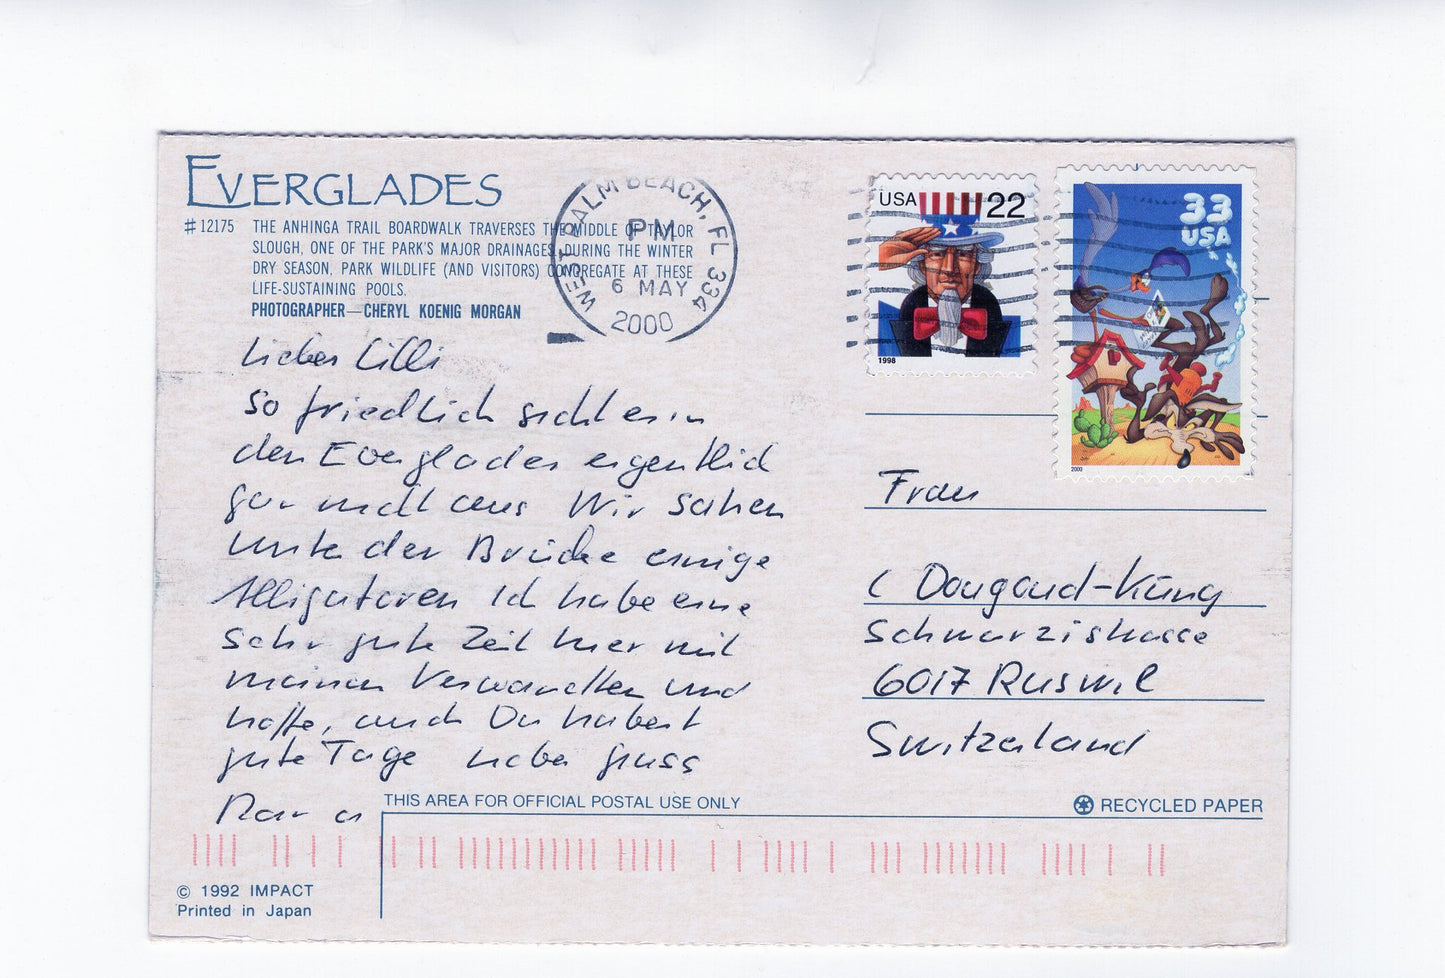 EVERGLADES
#12175 THE ANHINGA TRAIL BOARDWALK TRAVERSES THE MIDDLE OF TAYLOR
SLOUGH, ONE OF THE PARK'S MAJOR DRAINAGES. DURING THE WINTER
DRY SEASON, PARK WILDLIFE (AND VISITORS) CONGREGATE AT THESE
LIFE-SUSTAINING POOLS.
PHOTOGRAPHER—CHERYL KOENIG MORGAN
WEST PALM BEACH, FL 334
PM
6 MAY
2000
USA 22
1998
33
USA
2000
Lieber Cilli
So friedlich sieht es in
den Everglades eigentlich
gar nicht aus Wir sahen
unter der Brücke einige
Alligatoren Ich habe eine
sehr gute Zeit hier mit
meinen Verwandten und
hoffe, auch Du habest
gute Tage lieber Gruss
Frau
C Dougoud-Küng
Schwarzistrasse
6017 Ruswil
Switzerland
THIS AREA FOR OFFICIAL POSTAL USE ONLY
RECYCLED PAPER
© 1992 IMPACT
Printed in Japan